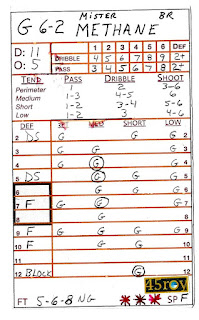 MISTER BR
G 6-2 METHANE
D: 11 1 2 3 4 5 6 DEF
O: 5 DRIBBLE 4 5 6 7 8 9 2+
PASS 3 4 5 6 7 8 2+
TEND PASS DRIBBLE SHOOT
Perimeter 1 2 3-6
Medium 1-3 4-5 6
Short 1-2 3-4 5-6
Low 1-2 3 4-6
DEF SHORT LOW
2 DS G G G 2
3 G G 3
4 G G 4
5 DS G G G 5
6 G G G 6
7 F G G G G 7
8 G G G 8
9 F G G G G 9
10 F G G G 10
11 G G 11
12 BLOCK G 45rov
FT 5-6-8 NG SP F